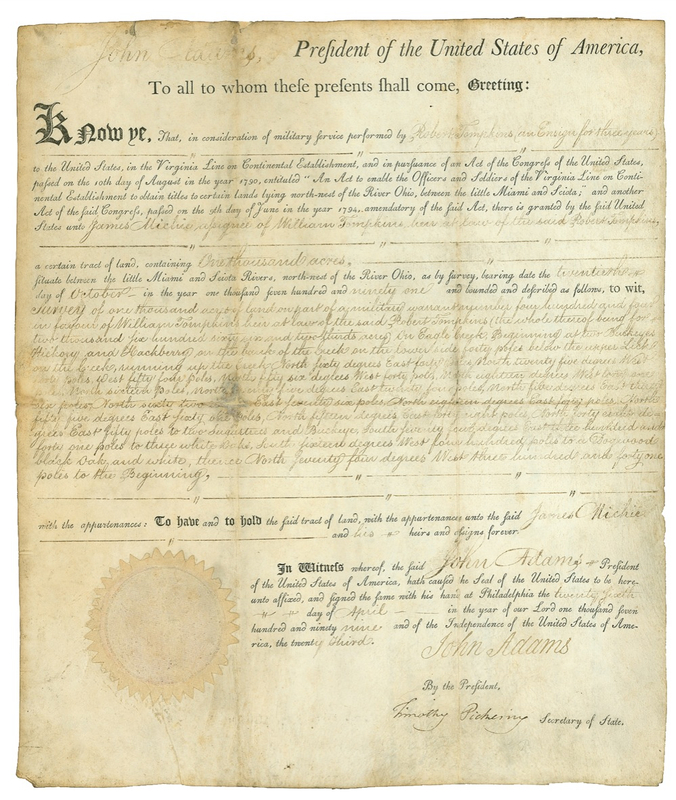 John Adams, President of the United States of America,
To all to whom theſe preſents ſhall come, Greeting:
Know ye, That, in conſideration of military ſervice performed by Robert Tompkins, an Enſign for three years,
to the United States, in the Virginia Line on Continental Eſtabliſhment, and in purſuance of an Act of the Congreſs of the United States,
paſſed on the 10th day of Auguſt in the year 1790, entituled "An Act to enable the Officers and Soldiers of the Virginia Line on Conti-
nental Eſtabliſhment to obtain titles to certain lands lying north-weſt of the River Ohio, between the little Miami and Sciota;" and another
Act of the ſaid Congreſs, paſſed on the 9th day of June in the year 1794, amendatory of the ſaid Act, there is granted by the ſaid United
States unto James Michie, aſsignee of William Tompkins heir at law of the said Robert Tompkins,
a certain tract of land, containing One thousand acres,
ſituate between the little Miami and Sciota Rivers, north-weſt of the River Ohio, as by ſurvey, bearing date the twentieth
day of October in the year one thouſand ſeven hundred and ninety one and bounded and deſcribed as follows, to wit,
Survey of one thousand acres of land on part of a military warrant number four hundred and four
in favour of William Tompkins heir at law of the said Robert Tompkins (the whole thereof being for
two thousand six hundred sixty six and two thirds acres) in Eagle Creek Beginning at two Buckeyes
Hickory and Hackberry on the bank of the creek on the lower side forty poles below the upper
on the Creek, running up the creek North sixty degrees East forty poles, North twenty five degrees West
forty poles, West fifty four poles, North fifty six degrees West forty poles, eighteen degrees West
North sixteen poles, East twenty four poles, North five degrees East
six poles, North sixty two East twenty six poles, North eighteen degrees East forty poles, North
fifty five degrees East sixty one poles, North fifteen degrees East forty eight poles, North forty seven de-
grees East fifty poles to two and Buckeye, South seventy four degrees East three hundred and
forty one poles to three white Oaks, South sixteen degrees West four hundred poles to a Dogwood
black Oak, and white, thence North Seventy four degrees West three hundred and forty one
poles to the Beginning,
with the appurtenances: To have and to hold the ſaid tract of land, with the appurtenances unto the ſaid James Michie
and his heirs and aſſigns forever.
In Witneſs whereof, the ſaid John Adams Preſident
of the United States of America, hath cauſed the Seal of the United States to be here-
unto affixed, and ſigned the ſame with his hand at Philadelphia the twenty sixth
day of April in the year of our Lord one thouſand ſeven
hundred and ninety nine and of the Independence of the United States of Ame-
rica, the twenty third.
John Adams
By the Preſident,
Timothy Pickering Secretary of State.